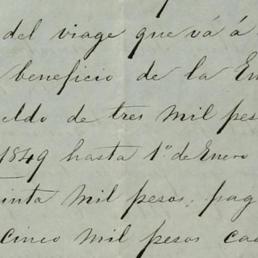 del viage que vá á
beneficio de la En
eldo de tres mil pes
1849 hasta 1º de Enero
inta mil pesos, pag
cinco mil pesos cad